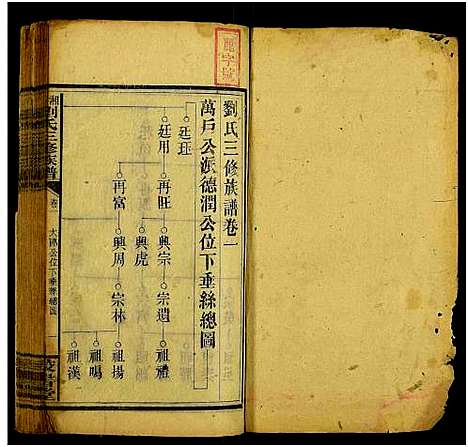 劉氏三修族譜卷一
萬戶公派德潤公位下垂絲總圖
廷珏
廷用
再旺
再富
興宗
興虎
興周
宗瓚
宗林
祖禮
祖揚
祖鳴
祖漢
劉氏三修族譜
卷一